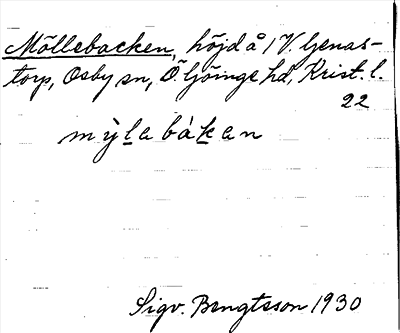 Möllebacken, höjd å 1 V. Genas-
torp, Osby sn, Ö. Göinge hd, Krist. l.
22
mỳla bákan
Sigv. Bengtsson 1930